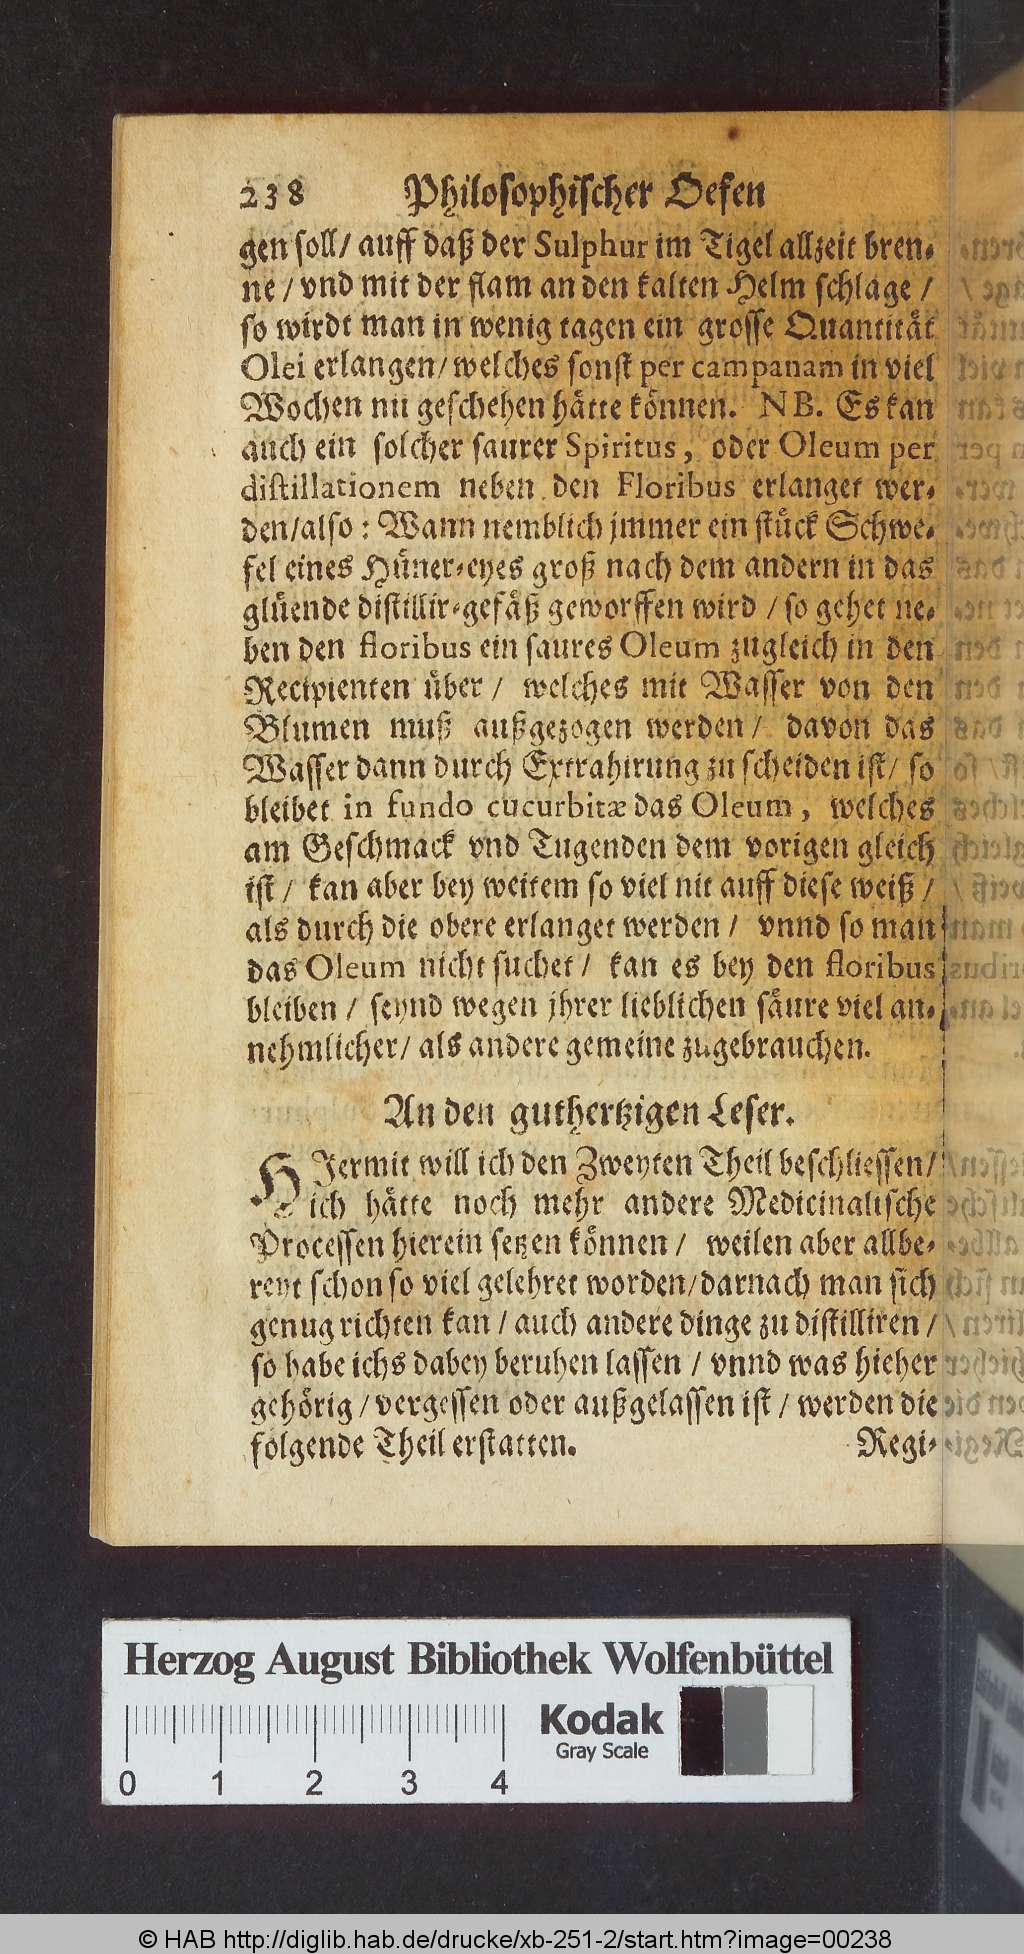 238 Philosophischer Oefen
gen soll/ auff daß der Sulphur im Tigel allzeit bren-
ne / vnd mit der flam an den kalten Helm schlage /
so wirdt man in wenig tagen ein grosse Quantität
Olei erlangen/ welches sonst per campanam in viel
Wochen nit geschehen hätte können. NB. Es kan
auch ein solcher saurer Spiritus, oder Oleum per
distillationem neben den Floribus erlanget wer-
den/also: Wann nemblich jmmer ein stück Schwe-
fel eines Hüner-eyes groß nach dem andern in das
glüende distillir-gefäß geworffen wird / so gehet ne-
ben den floribus ein saures Oleum zugleich in den
Recipienten über / welches mit Wasser von den
Blumen muß außgezogen werden / davon das
Wasser dann durch Extrahirung zu scheiden ist/ so
bleibet in fundo cucurbitæ das Oleum, welches
am Geschmack vnd Tugenden dem vorigen gleich
ist / kan aber bey weitem so viel nit auff diese weiß /
als durch die obere erlanget werden / vnnd so man
das Oleum nicht suchet / kan es bey den floribus
bleiben / seynd wegen jhrer lieblichen säure viel an-
nehmlicher/ als andere gemeine zugebrauchen.
An den guthertzigen Leser.
HJermit will ich den Zweyten Theil beschliessen/
ich hätte noch mehr andere Medicinalische
Processen hierein setzen können / weilen aber allbe-
reyt schon so viel gelehret worden/darnach man sich
genug richten kan / auch andere dinge zu distilliren /
so habe ichs dabey beruhen lassen / vnnd was hieher
gehörig / vergessen oder außgelassen ist / werden die
folgende Theil erstatten. Regi-
Herzog August Bibliothek Wolfenbüttel
Kodak
Gray Scale
0 1 2 3 4
© HAB http://diglib.hab.de/drucke/xb-251-2/start.htm?image=00238